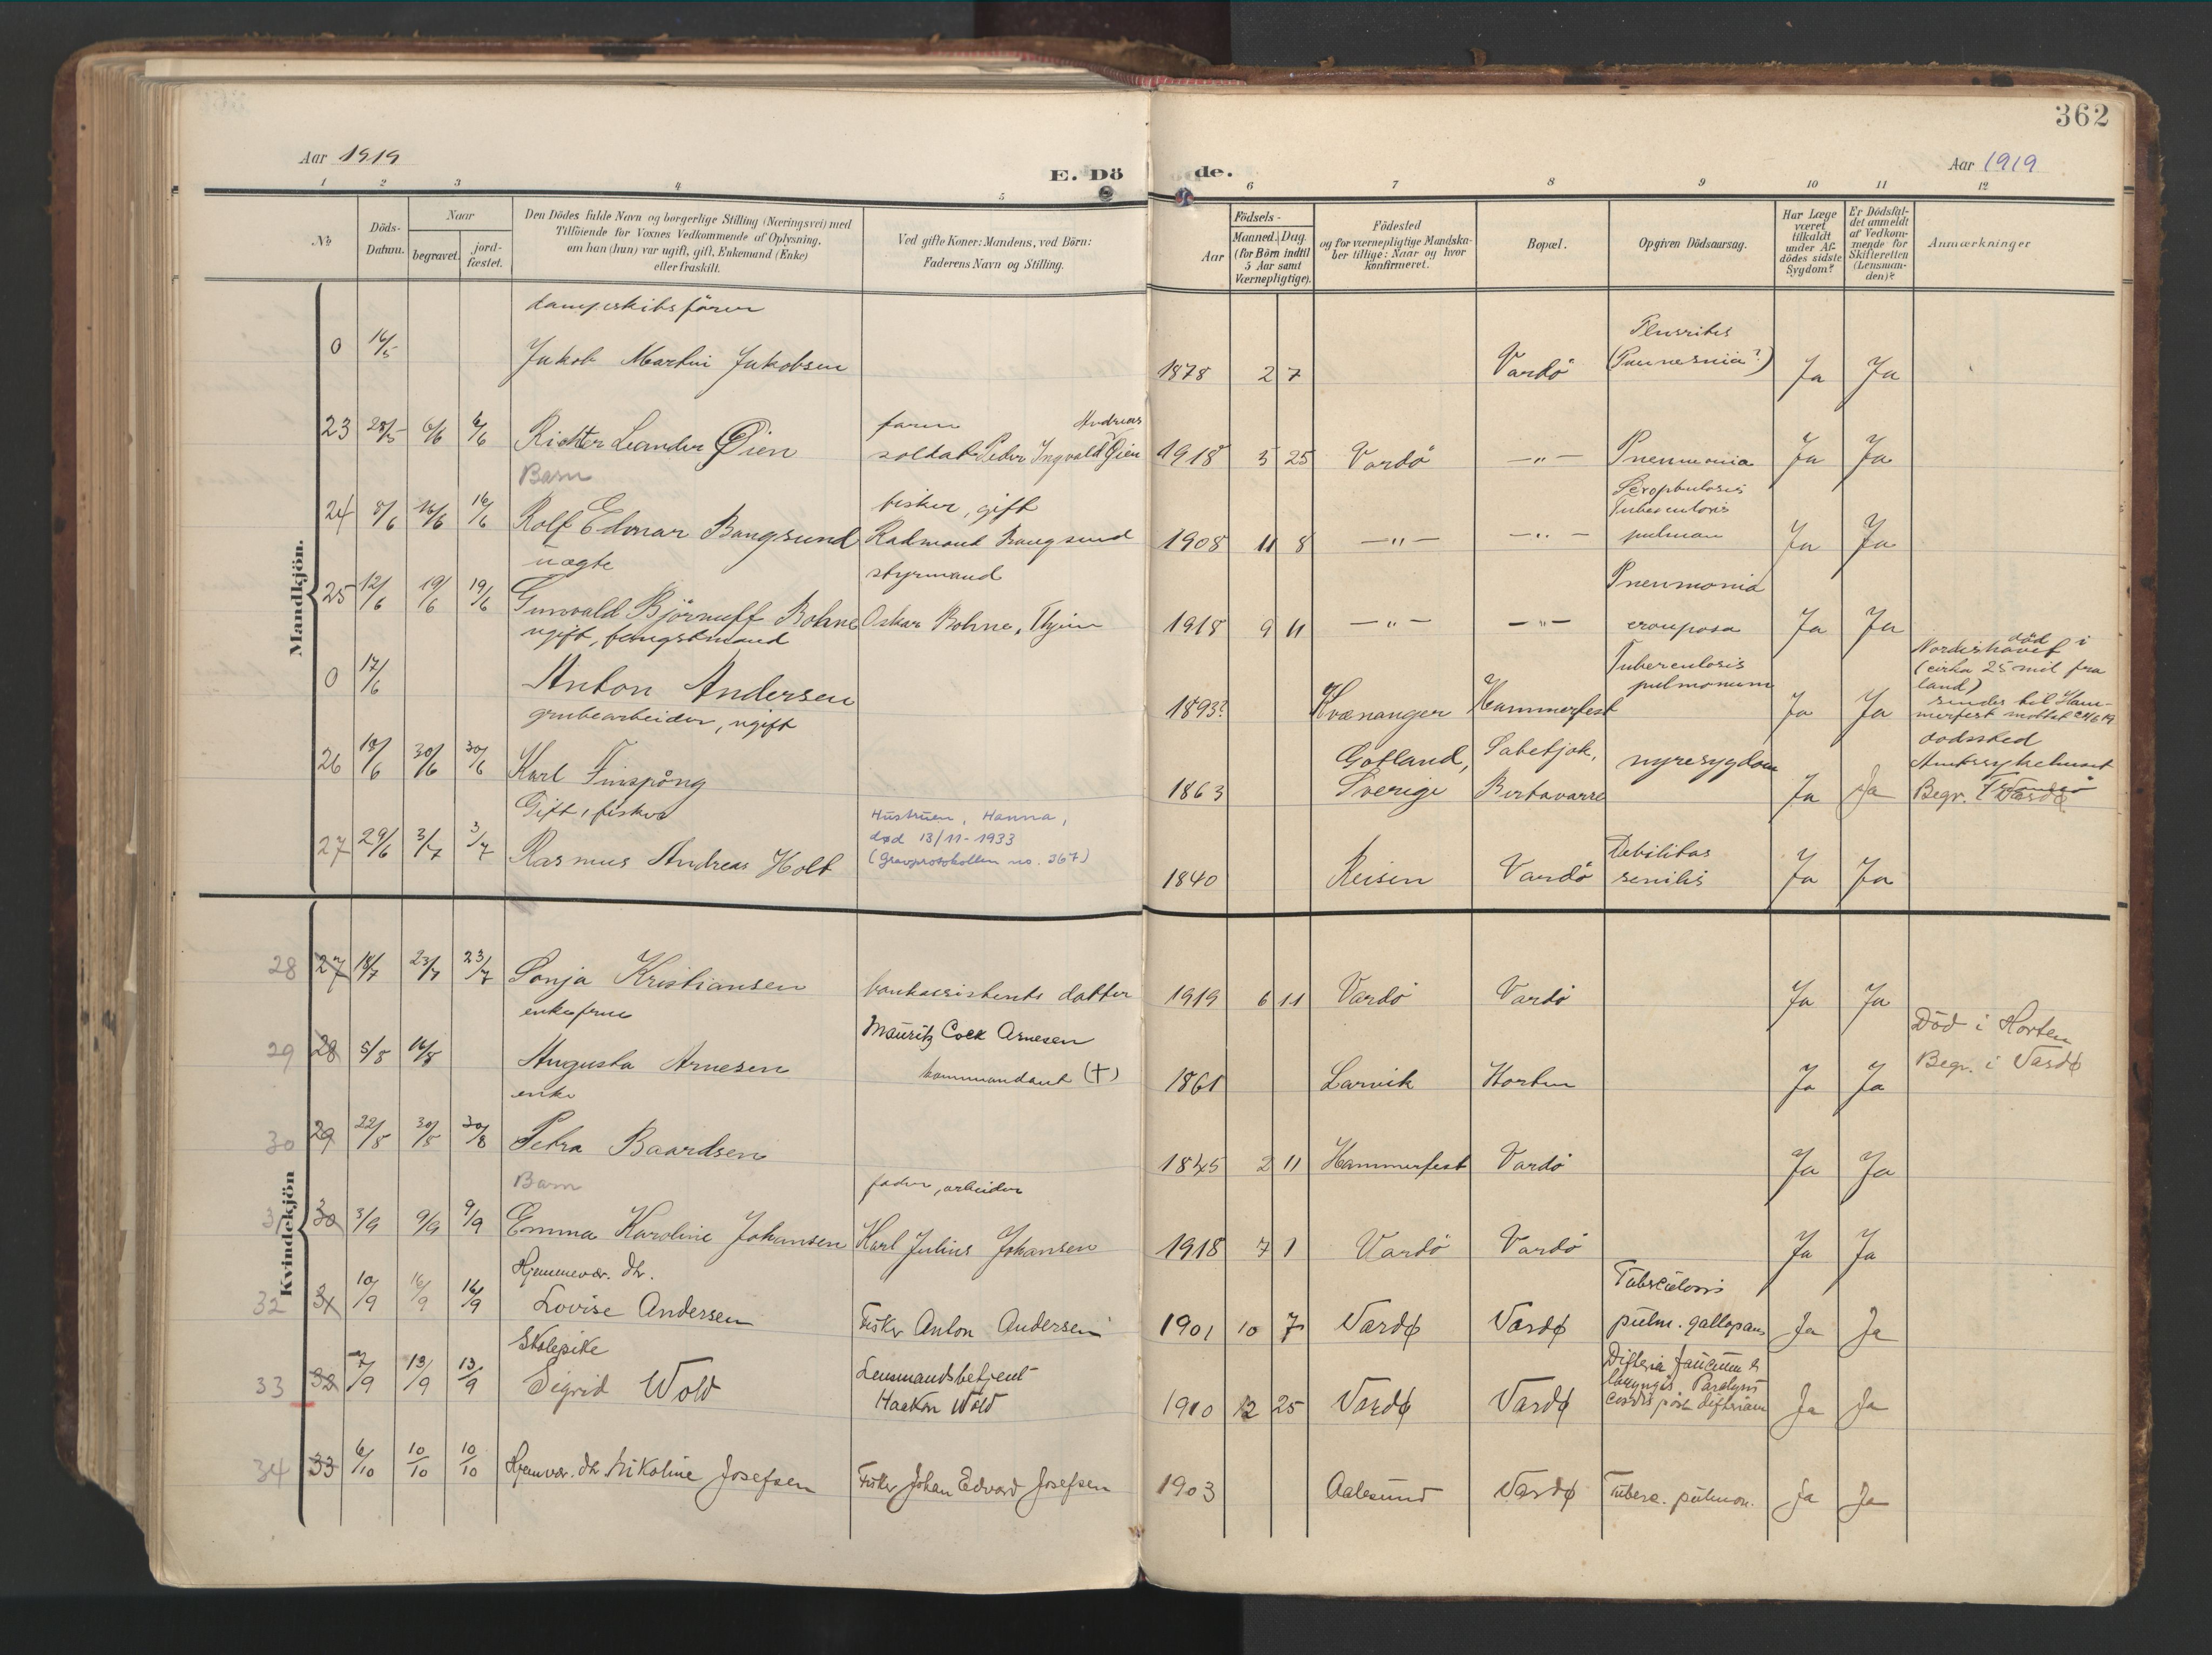 362
Aar 1919
E. Döde.
Aar 1919
1 2 3 4 5 6 7 8 9 10 11 12
No
Döds-Datum.
Naar
begravet.
jordfæstet.
Den Dödes fulde Navn og borgerlige Stilling (Næringsvei) med
Tilföiende for Voxnes Vedkommende af Oplysning,
om han (hun) var ugift, gift, Enkemand (Enke)
eller fraskilt.
Ved gifte Koner: Mandens, ved Börn:
Faderens Navn og Stilling.
Födsels-
Aar
Maaned. Dag.
(for Börn indtil
5 Aar samt
Værnepligtige).
Födested
og for værnepligtige Mandska-
ber tillige: Naar og hvor
konfirmeret.
Bopæl.
Opgiven Dödsaarsag.
Har Læge
været
tilkaldt
under Af-
dödes sidste
Sygdom?
Er Dödsfal-
det anmeldt
af Vedkom-
mende for
Skifteretten
(Lensman-
den)?
Anmærkninger
Mandkjön.
dampskibsförer
0 16/5 Jakob Martin Jakobsen 1878 2 7 Vardö Pleuritis
Ja Ja
23 28/5 6/6 6/6 Rikter Leander Øien
Barn
soldat Peder Ingvald Andreas Øien 1918 5 25 Vardö —"— Pneumonia Ja Ja
24 8/6 16/6 16/6 Rolf Edmar Bangsund
fisker, gift
Radmand Bangsund 1908 11 8 —"— —"— Scrophulosis
Tuberculosis
pulmon Ja Ja
uægte
25 12/6 19/6 19/6 Gunvald Björnulf Bohne
styrmand
Oskar Bohne, Thjem 1918 9 11 —"— —"— Pneumonia
crouposa Ja Ja
ugift, fangstmand
0 17/6 Anton Andersen 1893? Kvænanger Hammerfest Tuberculosis
pulmonum Ja Ja
död i
Nordishavet
(cirka 25 mil fra
land)
sendes til Ham-
merfest mottat 24/6 19
grubearbeider, ugift
26 18/6 30/6 30/6 Karl Finspång 1863 Gotland,
Sverige
Sabetjok,
Birtavarre nyresygdom Ja Ja
dødssted
Amtssykehuset
Tromsø
Begr. Vardø
Gift, fisker
27 29/6 3/7 3/7 Rasmus Andreas Holt
Hustruen, Hanna,
død 13/11-1933
(Gravprotokollen no. 367)
1840 Reisen Vardö Debilitas
senilis Ja Ja
Kvindekjön
28 27 18/7 23/7 23/7 Sonja Kristiansen bankassistents datter 1919 6 11 Vardö Vardö Ja Ja
enkefrue
29 28 5/8 16/8 Augusta Arnesen
Mauritz Cock Arnesen
kommandant (+) 1861 Larvik Horten Ja Ja
Död i Horten
Begr. i Vardø
enke
30 29 22/8 30/8 30/8 Petra Baardsen 1845 2 11 Hammerfest Vardö Ja Ja
Barn
31 30 3/9 9/9 9/9 Emma Karoline Johansen
fader, arbeider
Karl Julius Johansen 1918 7 1 Vardö Vardö Ja Ja
Hjemmevær. dtr.
32 31 10/9 16/9 16/9 Lovise Andersen Fisker Anton Andersen 1901 10 7 Vardø Vardø Tuberculosis
pulm. gallopans Ja Ja
Skolepike
33 32 7/9 13/9 13/9 Sigrid Wold
Lensmandsbetjent
Haakon Wold 1910 12 25 Vardø Vardø Difteria faucium &
laryngis Paralysis
cordis post difteriam Ja Ja
34 33 6/10 10/10 10/10 Hjemvær. dtr Nikoline Josefsen Fisker Johan Edvard Josefsen 1903 Aalesund Vardø Tuberc. pulmon. Ja Ja